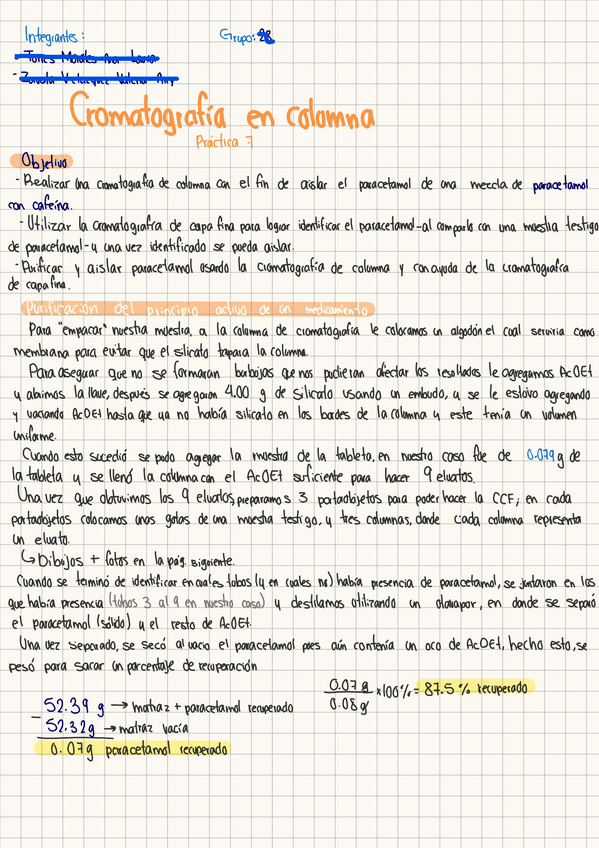 Integrantes: Grupo:
Cromatografía en columna
Práctica 7
Objetivo
- Realizar una cromatografía de columna con el fin de aislar el paracetamol de una mezcla de paracetamol
con cafeína.
- Utilizar la cromatografía de capa fina para lograr identificar el paracetamol-al compararlo con una muestra testigo
de paracetamol-y una vez identificado se pueda aislar.
- Purificar y aislar paracetamol usando la cromatografía de columna y con ayuda de la cromatografía
de capa fina.
Purificación del principio activo de un medicamento
Para "empacar" nuestra muestra, a la columna de cromatografía le colocamos un algodón el cual serviría como
membrana para evitar que el silicato tapara la columna.
Para asegurar que no se formaran burbujas que nos pudieran afectar los resultados le agregamos AcOEt
y abrimos la llave, después se agregaron 4.00 g de silicato usando un embudo, y se le estuvo agregando
y vaciando AcOEt hasta que ya no había silicato en los bordes de la columna y este tenía un volumen
uniforme.
Cuando esto sucedió se pudo agregar la muestra de la tableta, en nuestro caso fue de 0.079 g de
la tableta y se llenó la columna con el AcOEt suficiente para hacer 9 eluatos.
Una vez que obtuvimos los 9 eluatos, preparamos 3 portaobjetos para poder hacer la CCF; en cada
portaobjetos colocamos unas gotas de una muestra testigo, y tres columnas, donde cada columna representa
un eluato.
↳ Dibujos + fotos en la pág. siguiente.
Cuando se terminó de identificar en cuales tubos (y en cuales no) había presencia de paracetamol, se juntaron en los
que había presencia (tubos 3 al 9 en nuestro caso) y destilamos utilizando un rotavapor, en donde se separó
el paracetamol (sólido) y el resto de AcOEt.
Una vez separado, se secó al vacio el paracetamol pues aún contenía un poco de AcOEt, hecho esto, se
pesó para sacar un porcentaje de recuperación
52.39 g → matraz + paracetamol recuperado
- 52.32g → matraz vacía
0.07g paracetamol recuperado
0.07 g
0.08 g × 100% = 87.5 % recuperado